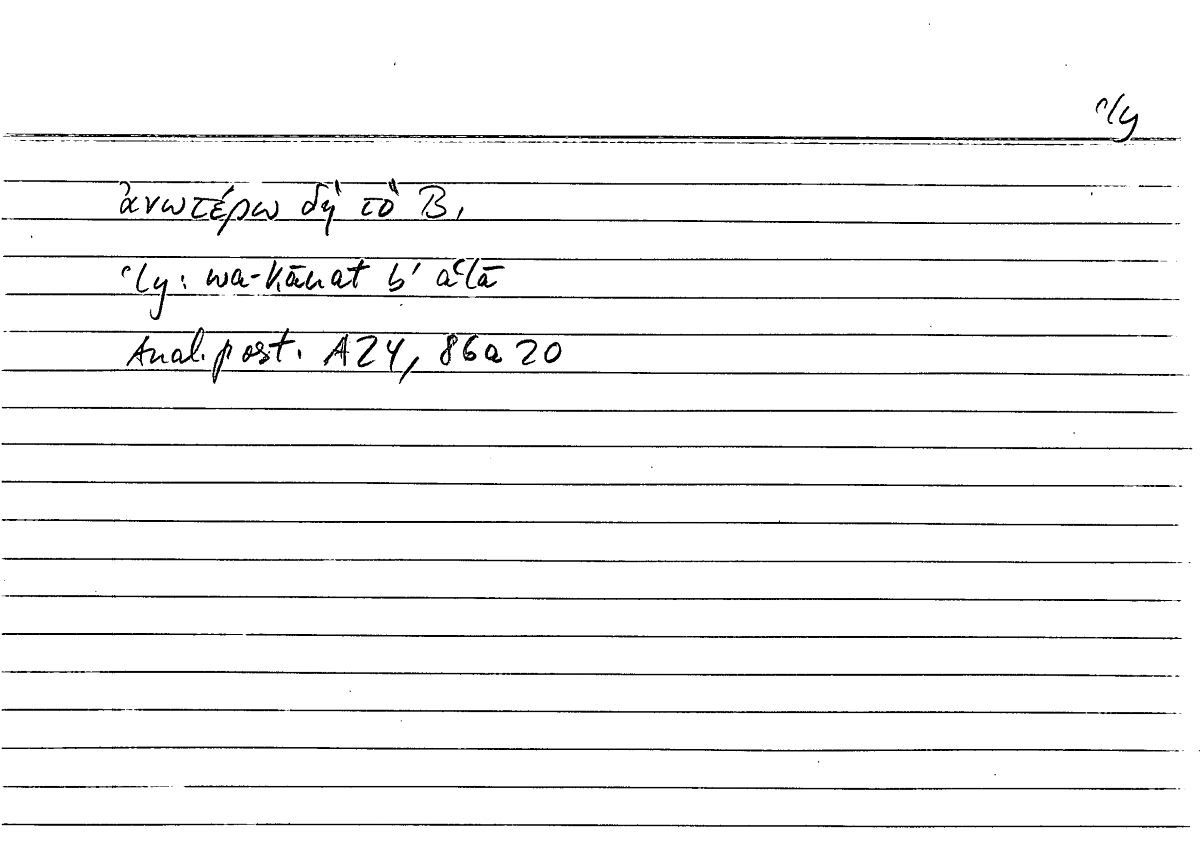 ʿly
ἀνωτέρω δὴ τὸ B,
ʿly: wa-kānat b' aʿlā
Anal. post. A24, 86a20